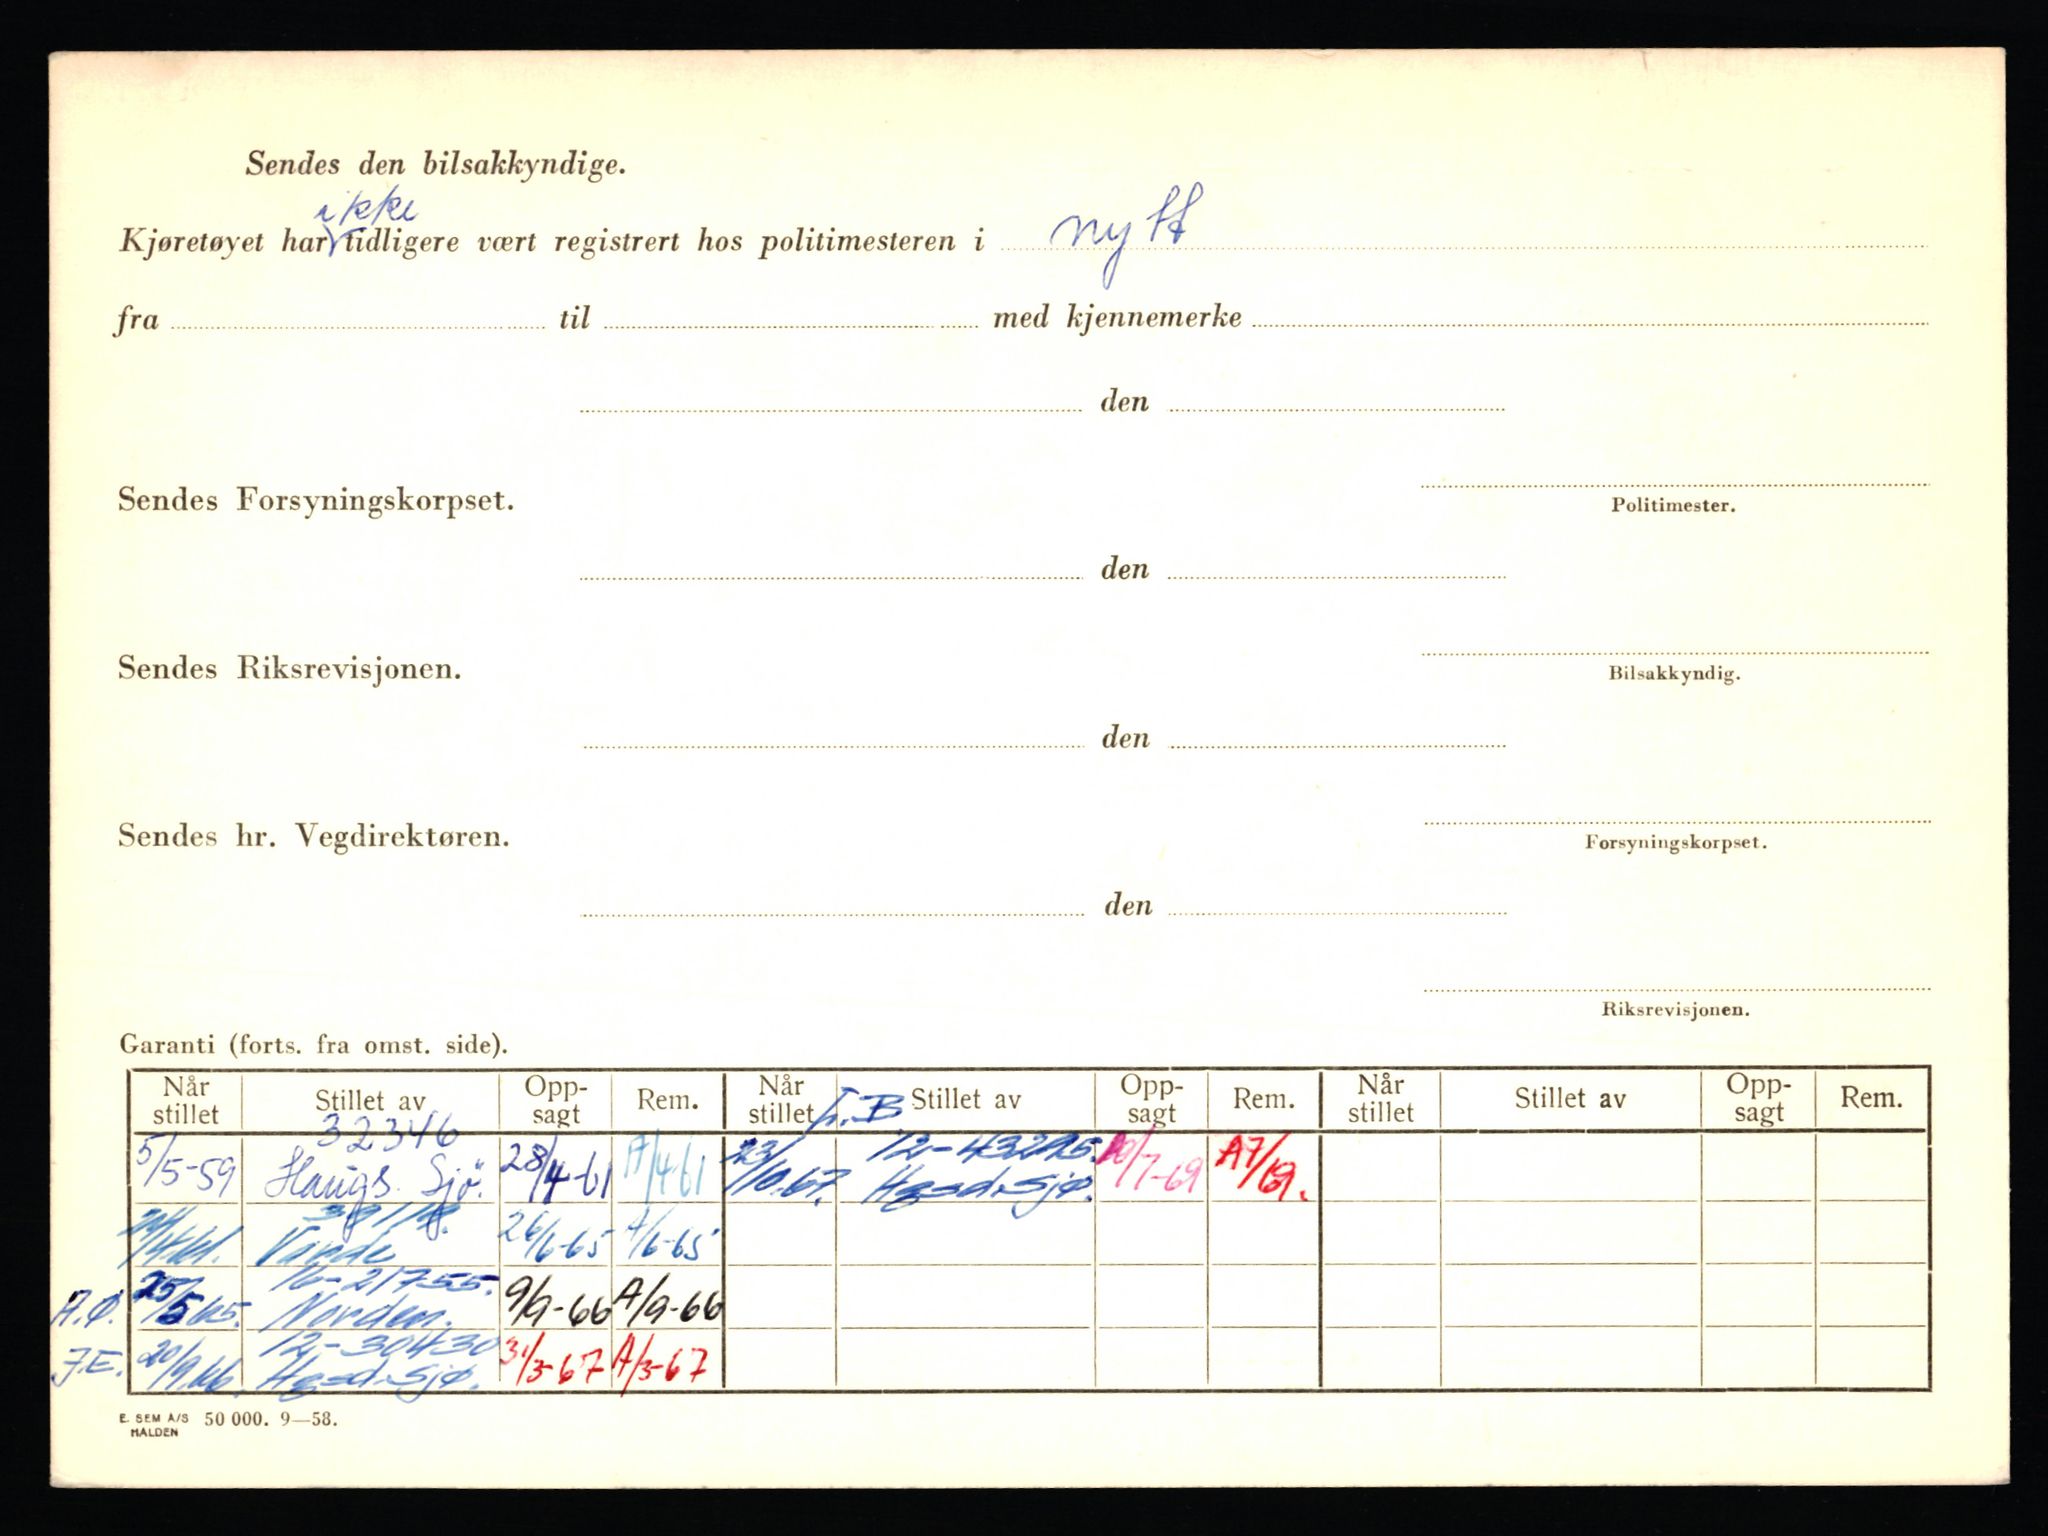 Sendes den bilsakkyndige.
ikke
Kjøretøyet har tidligere vært registrert hos politimesteren i nytt
fra til med kjennemerke
den
Sendes Forsyningskorpset.
Politimester.
den
Sendes Riksrevisjonen.
Bilsakkyndig.
den
Sendes hr. Vegdirektøren.
Forsyningskorpset.
den
Riksrevisjonen.
Garanti (forts. fra omst. side).
Når stillet Stillet av Opp-sagt Rem. Når stillet Stillet av Opp-sagt Rem. Når stillet Stillet av Opp-sagt Rem.
32346
5/5-59 Haugs. Sjö. 28/4-61 A/4-61
26/6-65 A/6-65
16-21755.
A.Ø. 25/5 65. Norden. 9/9-66 A/9-66
12-30430
J.E. 20/9.66. Hgsd.Sjø. 31/3-67 A/3-67
23/10.67. Hgsd.Sjø. A7/69.
E. SEM A/S 50 000. 9—58.
HALDEN